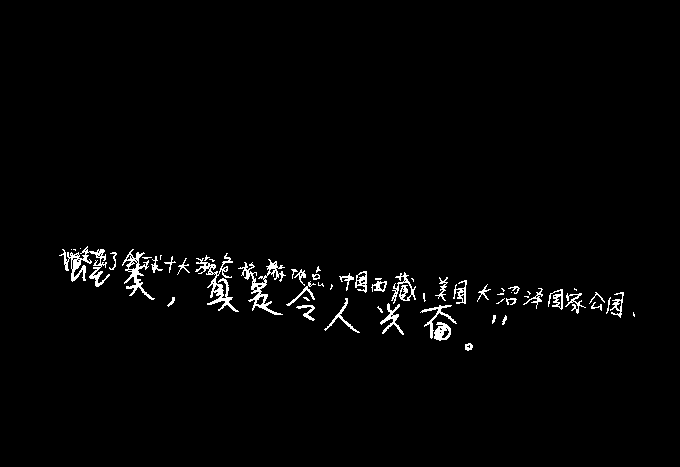 了全球十大濒危旅游地点,中国西藏、美国大沼泽国家公园、
类,真是令人兴奋。"